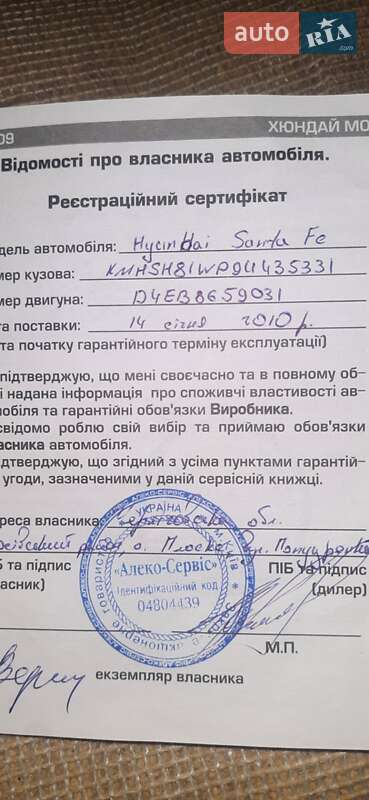 auto RIA .com
09 ХЮНДАЙ МО
Відомості про власника автомобіля.
Реєстраційний сертифікат
дель автомобіля: Hyundai Santa Fe
мер кузова: KMHSH81WP9U435331
мер двигуна: D4EB8659031
та поставки: 14 січня 2010 р.
та початку гарантійного терміну експлуатації)
підтверджую, що мені своєчасно та в повному об-
і надана інформація про споживчі властивості ав-
мобіля та гарантійні обов'язки Виробника.
свідомо роблю свій вибір та приймаю обов'язки
асника автомобіля.
дтверджую, що згідний з усіма пунктами гарантій-
угоди, зазначеними у даній сервісній книжці.
реса власника: обл.
Б та підпис ПІБ та підпис
асник) (дилер)
УКРАЇНА
м. Київ
акціонерне товариство
«Алеко-Сервіс»
Ідентифікаційний код
04804439
М.П.
екземпляр власника